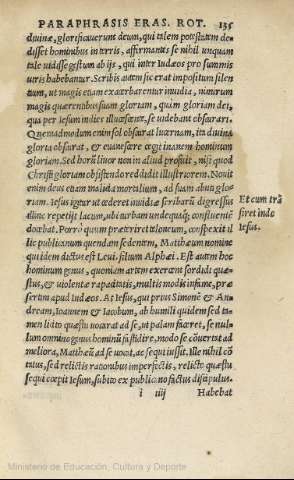 PARAPHRASIS ERAS. ROT. 135
divinæ, glorificaverunt deum, qui talem potestatem de
disset hominibus in terris, affirmantes se nihil unquam
tale vidisse gestum ab ijs, qui inter Iudæos pro summis
viris habebantur. Scribis autem sic erat impositum silen
tium, ut magis etiam exacerbarentur invidia, nimirum
magis quærentibus suam gloriam, quàm gloriam dei,
quæ per Iesum indies illucescente, se videbant obscurari.
Quemadmodum enim sol obscurat lucernam, ita divina
gloria obscurat, & evanescere cogit inanem hominum
gloriam. Sed horum livor non in aliud profuit, nisi quod
Christi gloriam obsistendo reddidit illustriorem. Novit
enim deus etiam malicia mortalium, ad suam abuti glo-
riam. Iesus igitur ut cederet invidiæ scribarum digressus
illinc repetijt lacum, ubi turbam undequaque confluentem
docebat. Porrò quum præteriret teloneum, conspexit il
lic publicanum quendam sedentem, Matthæum nomine
qui idem dictus est Levi, filium Alphæi. Est autem hoc
hominum genus, quoniam artem exercent sordidi quæ-
stus, & violentæ rapacitatis, multis modis infame, præ
sertim apud Iudæos. At Iesus, qui prius Simonem & An-
dream, Ioannem & Iacobum, ab humili quidem sed ta-
men licito quæstu vocarat ad se, ut palam faceret, se nul-
lum omnino genus hominum fastidire, modo se covertat ad
meliora, Matthæum ad se vocat, ac sequi iussit. Ille nihil cō
tatus, sed relictis rationibus imperfectis, relicto quæstu
sequi cœpit Iesum, subito ex publicano factus discipulus.
i iiij Habebat
Et cum trā
siret inde
Iesus.
Ministerio de Educación, Cultura y Deporte